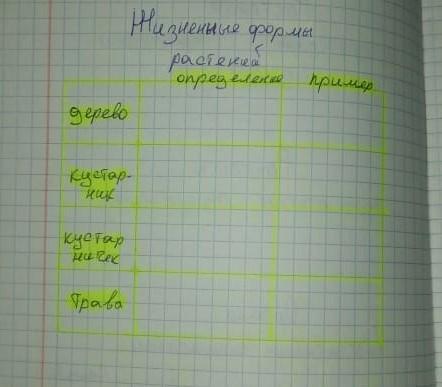 Жизненные формы
растений
определение пример
дерево
кустар-
ник
кустар
ничек
трава